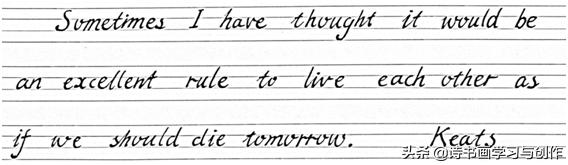 Sometimes I have thought it would be
an excellent rule to live each other as
if we should die tomorrow. Keats
头条@诗书画学习与创作